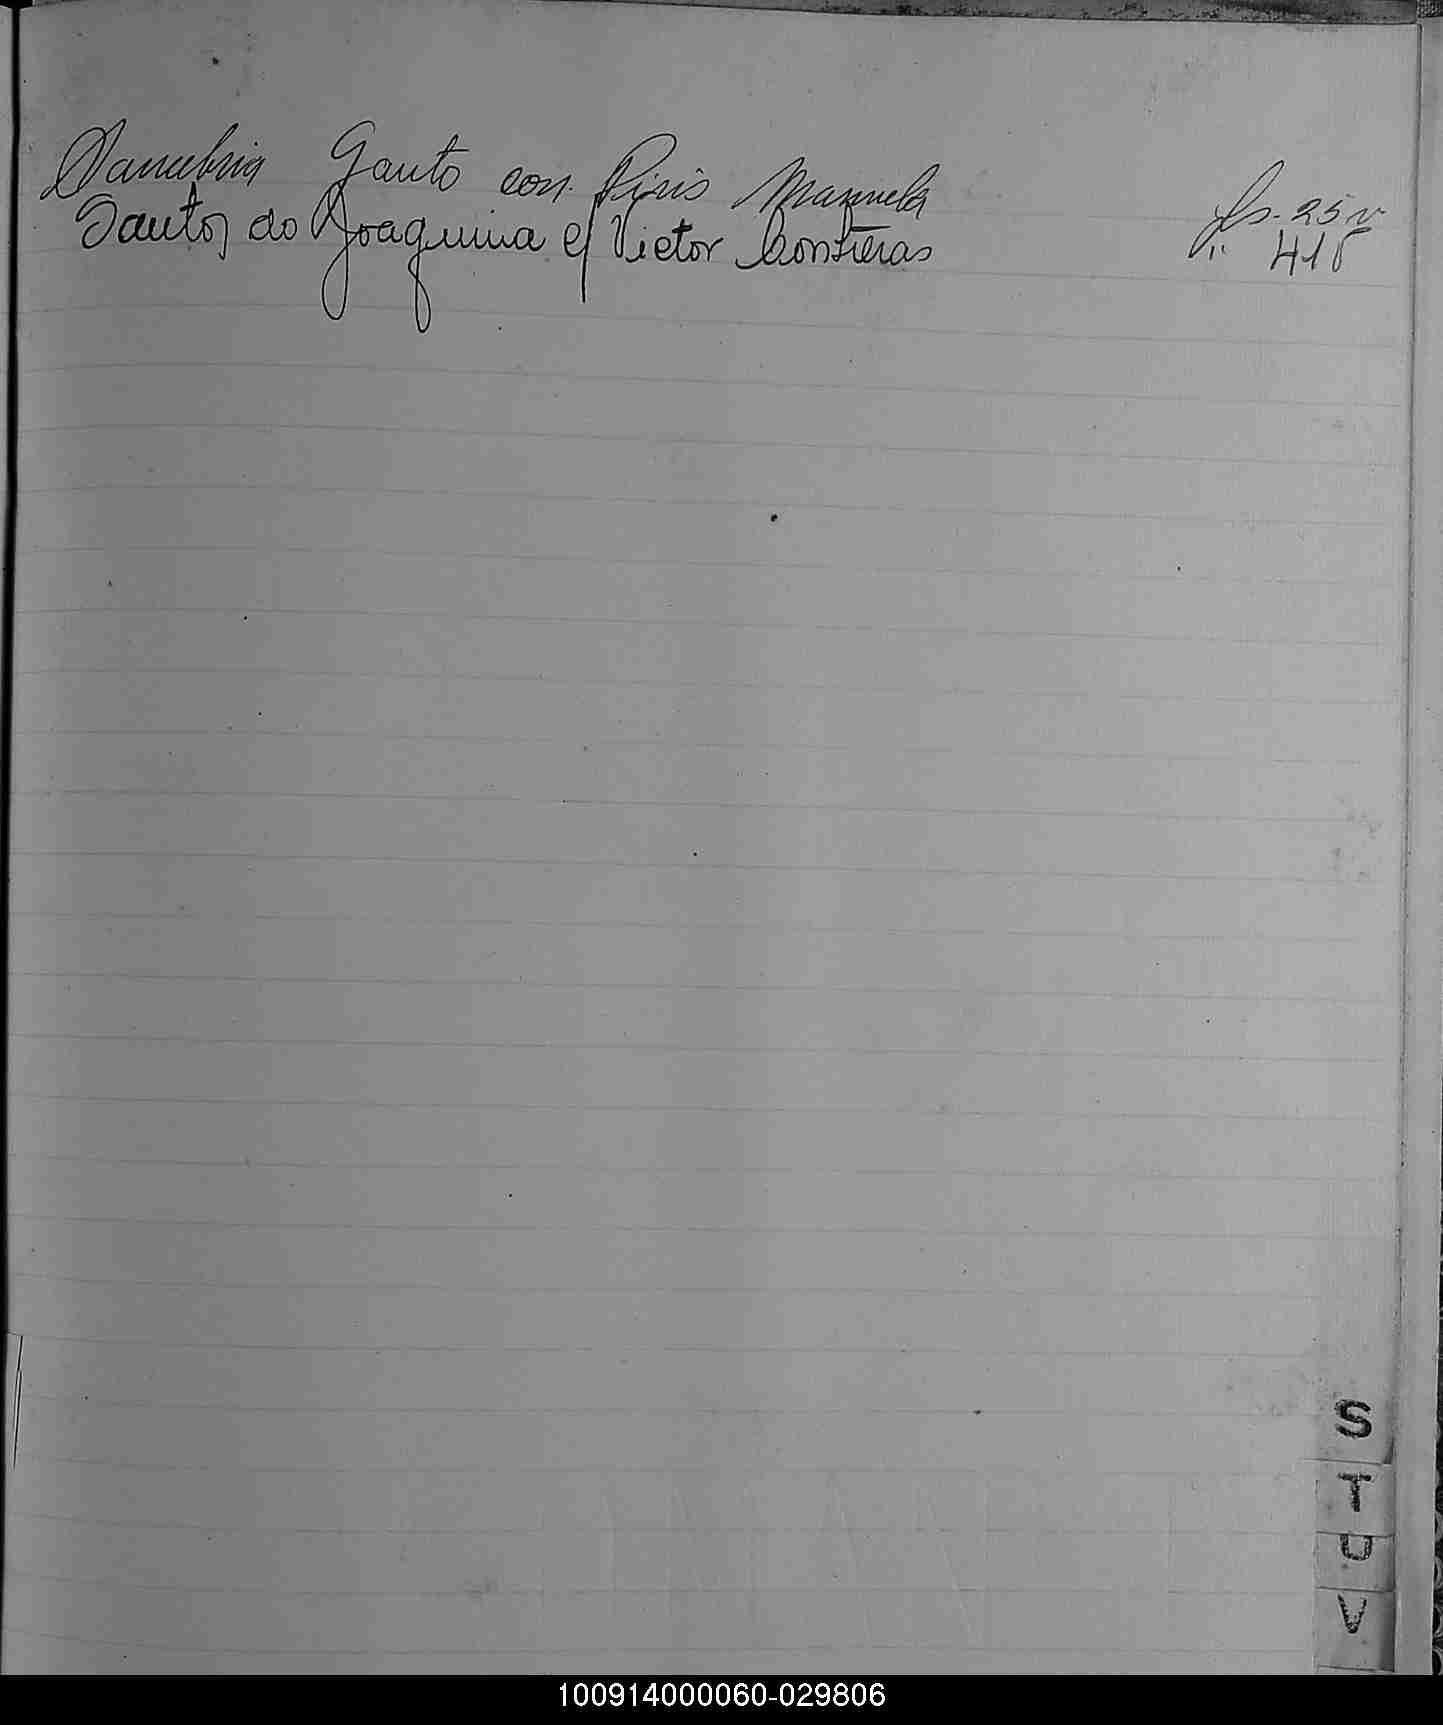 Sanabria Gauto con Piris Manuela fs. 25 v
Santos do Joaquina c/ Victor Contreras " 415
S
T
U
V
100914000060-029806